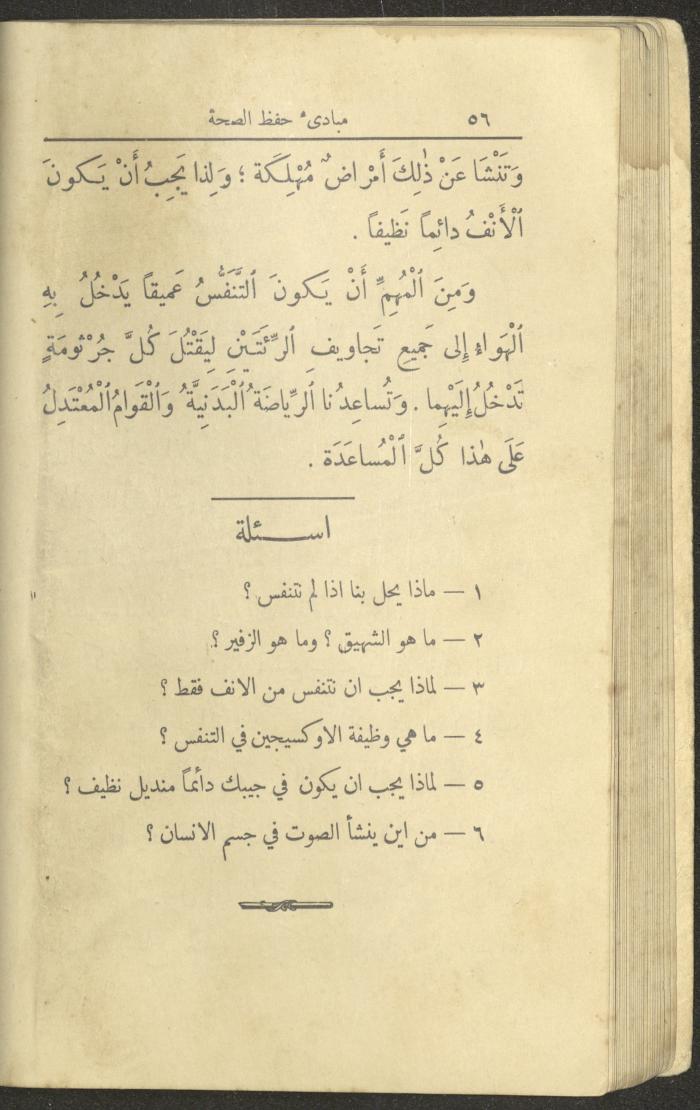 ٥٦ مبادىء حفظ الصحة
وَتَنْشَا عَنْ ذٰلِكَ أَمْراضٌ مُهْلِكَة ؛ وَلِذا يَجِبُ أَنْ يَكونَ
ٱلْأَنْفُ دائِماً نَظيفاً .
وَمِنَ ٱلْمُهِمِّ أَنْ يَكونَ ٱلتَّنَفُّسُ عَميقاً يَدْخُلُ بِهِ
ٱلْهَواءُ إِلى جَميعِ تَجاويفِ ٱلرِّئَتَيْنِ لِيَقْتُلَ كُلَّ جُرْثومَةٍ
تَدْخُلُ إِلَيْهِما . وَتُساعِدُنا ٱلرِّياضَةُ ٱلْبَدَنِيَّةُ وَٱلْقَوامُ ٱلْمُعْتَدِلُ
عَلَى هٰذا كُلَّ ٱلْمُساعَدَة .
اسئلة
١ — ماذا يحل بنا اذا لم نتنفس ؟
٢ — ما هو الشهيق ؟ وما هو الزفير ؟
٣ — لماذا يجب ان نتنفس من الانف فقط ؟
٤ — ما هي وظيفة الاوكسيجين في التنفس ؟
٥ — لماذا يجب ان يكون في جيبك دائماً منديل نظيف ؟
٦ — من اين ينشأ الصوت في جسم الانسان ؟